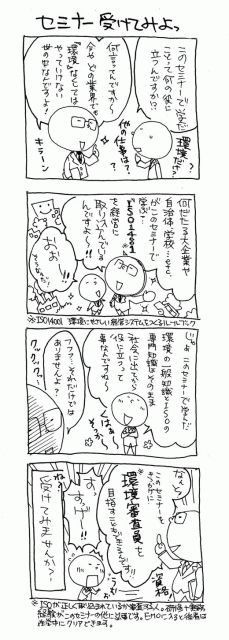 セミナー受けてみよっ
このセミナーで学んだ
ことって何の役に
立つんですか!?
環境だ?
他の仕事は?
何言ってんですか!
今やどの業界でも
環境なくしては
やっていけない
世の中なんですよ!
キラーン
何せたる大企業や
自治体、学校…etc.
がこのセミナーで
学ぶ…
ISO14001
を経営に
取り入れている
んですよ〜!!
おおっ
※ISO14001 環境にやさしい経営システムをつくるルールブック
じゃ、このセミナーで学んだ
環境の一般知識とISOの
専門知識はそのまま
社会に出てから
役に立つって
事なんですね〜
フフフ…それだけでは
ありませんよ?
クックックッ…
なんと
このセミナーを
きっかけに
※環境審査員を
目指すこともできるんです!!
資格
すっ
すっげー!!
ねっ
受けてみませんか?
※ISOが正しく取込まれているか審査する人。研修+実務
経験がこのセミナーの他に必要です。EMOにスると後者は
在学中にクリアできます。